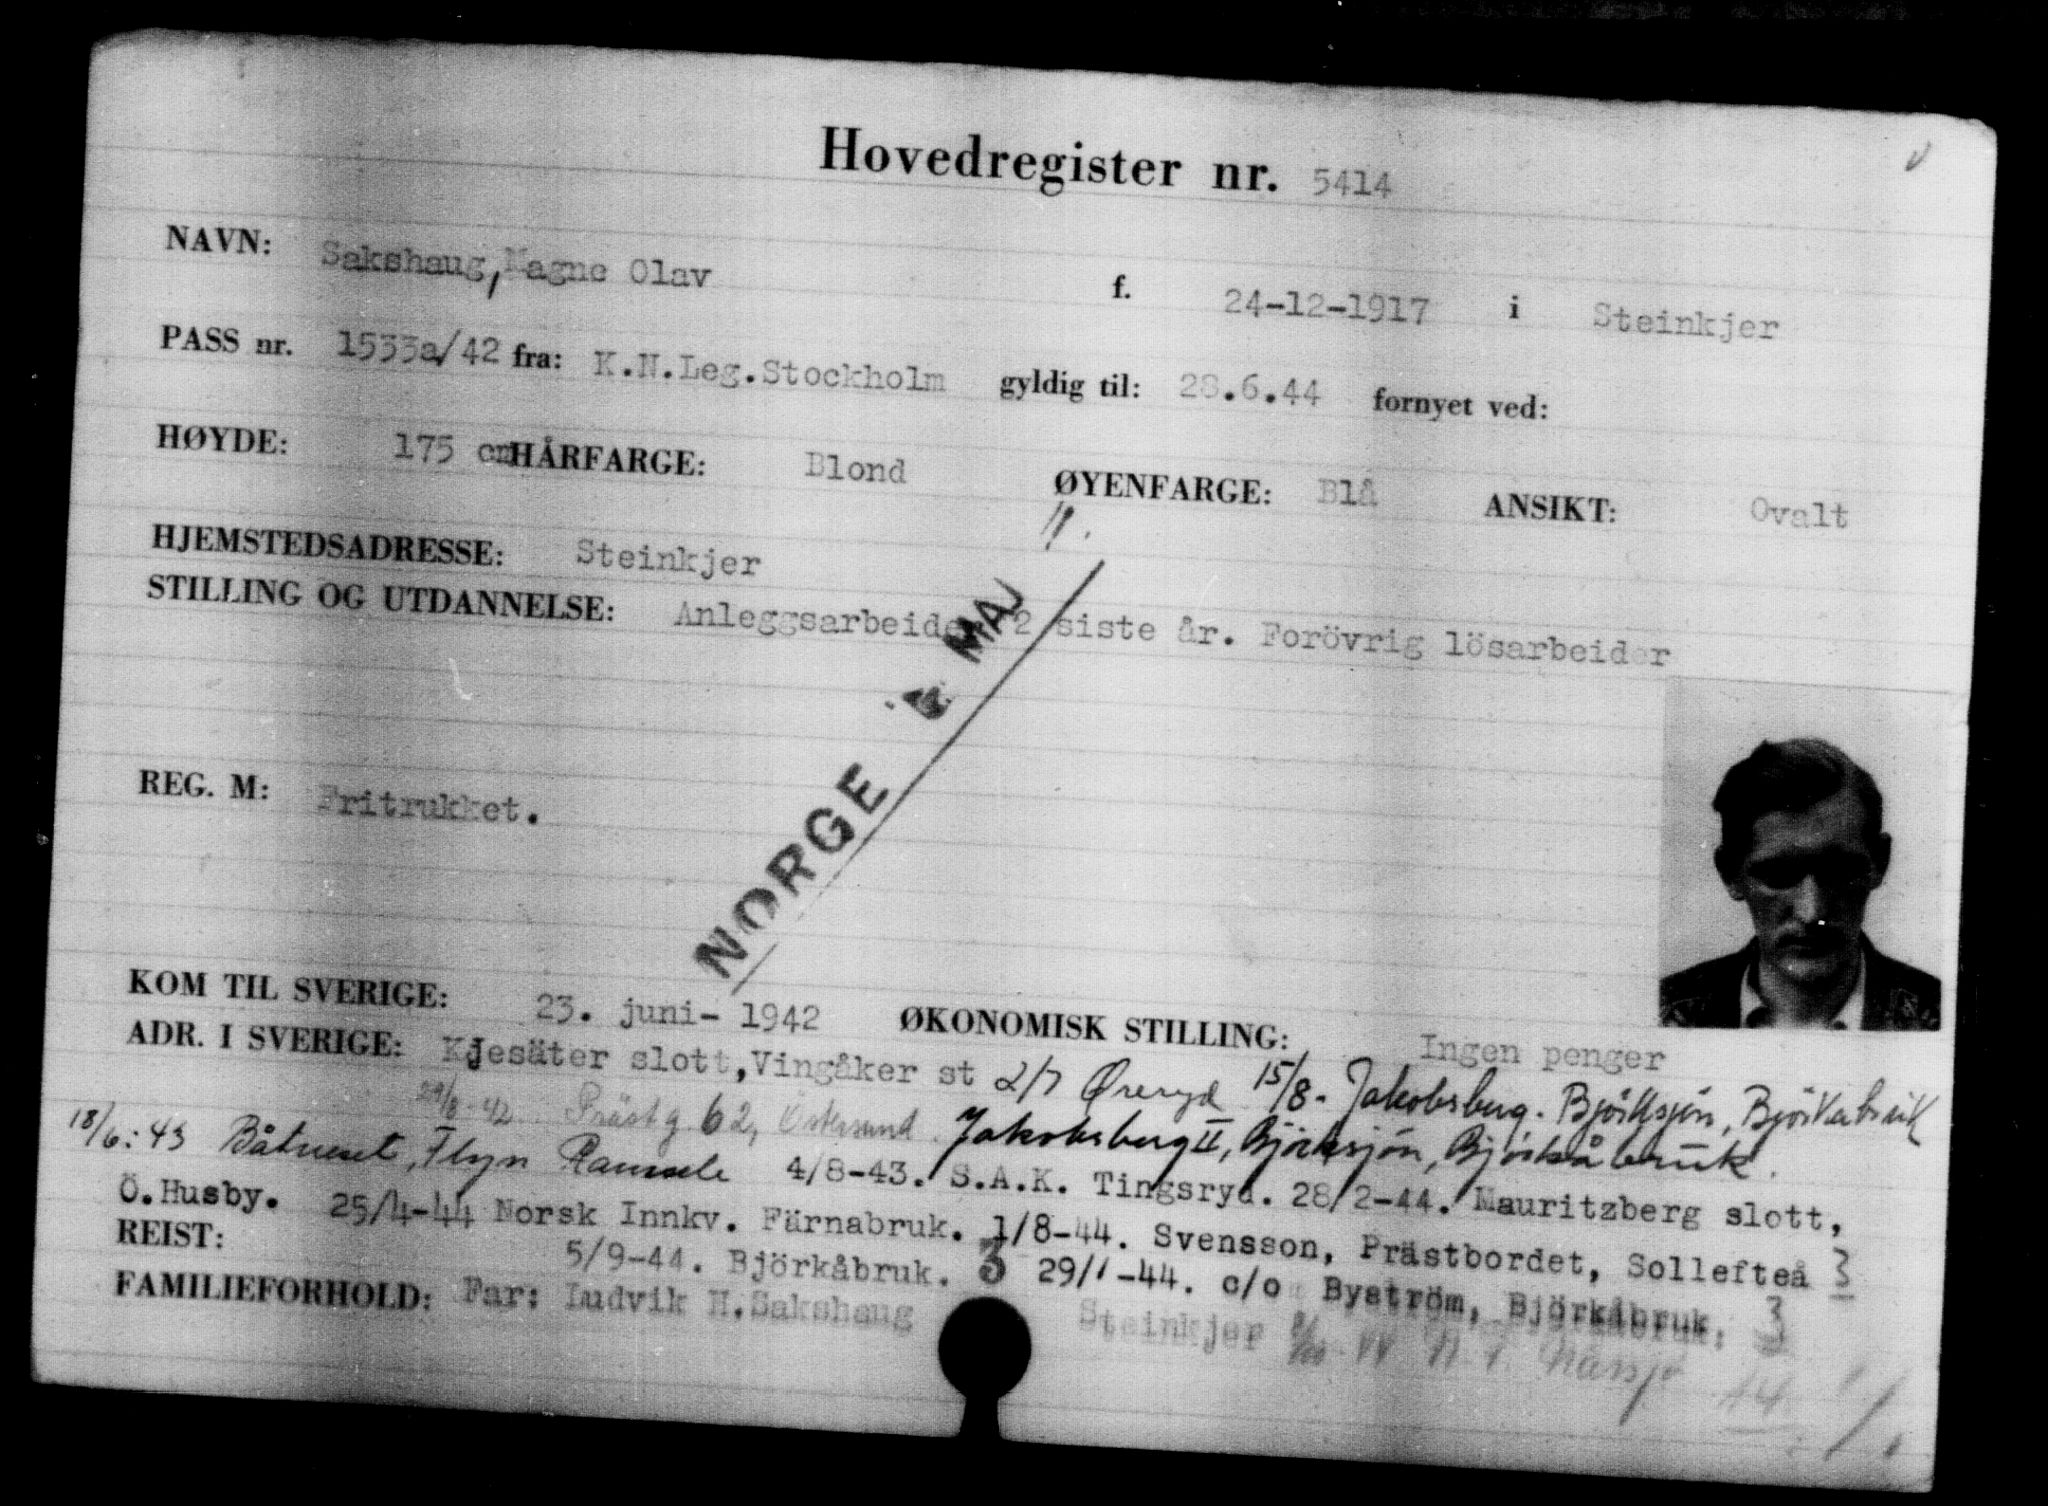 Hovedregister nr. 5414
NAVN: Sakshaug, Magne Olav f. 24-12-1917 i Steinkjer
PASS nr. 1533a/42 fra: K.N.Leg.Stockholm gyldig til: 28.6.44 fornyet ved:
HØYDE: 175 cm HÅRFARGE: Blond ØYENFARGE: Blå ANSIKT: Ovalt
HJEMSTEDSADRESSE: Steinkjer
STILLING OG UTDANNELSE: Anleggsarbeider 2 siste år. Forövrig lösarbeider
NORGE MAJ
REG. M: Fritrukket.
KOM TIL SVERIGE: 23. juni- 1942 ØKONOMISK STILLING: Ingen penger
ADR. I SVERIGE: Kjesäter slott, Vingåker st 2/7 Øreryd 15/8- Jakobsberg. Björksjön, Björkabruk
Prästg 62, Östersund. Jakobsberg II, Björksjön, Björkåbruk.
18/6: 43 Båtneset, Flyn Ramsele 4/8-43. S.A.K. Tingsryd. 28/2-44. Mauritzberg slott,
Ö.Husby. 25/4-44 Norsk Innkv. Färnabruk. 1/8-44. Svensson, Prästbordet, Sollefteå 3
REIST: 5/9-44. Björkåbruk. 3 29/11-44. c/o Byström, Björkåbruk. 3
FAMILIEFORHOLD: Far: Ludvik H.Sakshaug Steinkjer